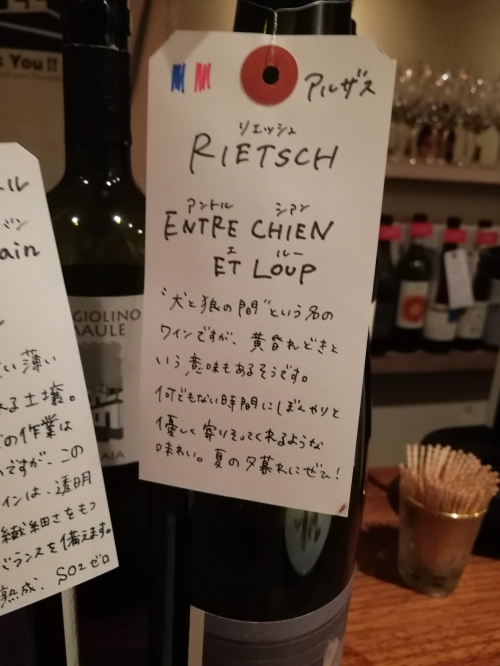 You !!
GIOLINO
MAULE
AIA
ル
ain
い薄い
る土壌。
の作業は
ですが、この
インは、透明
繊細さをもつ
バランスを備えます。
熟成、SO2ゼロ
アルザス
リエッシュ
RIETSCH
アントル シアン
ENTRE CHIEN
エ ルー
ET LOUP
"犬と狼の間"という名の
ワインですが、黄昏れどきと
いう意味もあるそうです。
何でもない時間にぼんやりと
優しく寄りそってくれるような
味わい。夏の夕暮れにぜひ!